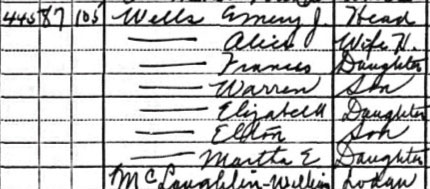 445 87 105 Wells Emery J. Head
— Alice Wife H.
— Frances Daughter
— Warren Son
— Elizabeth Daughter
— Eldon Son
— Martha E Daughter
McLaughlin-Willis Lodger